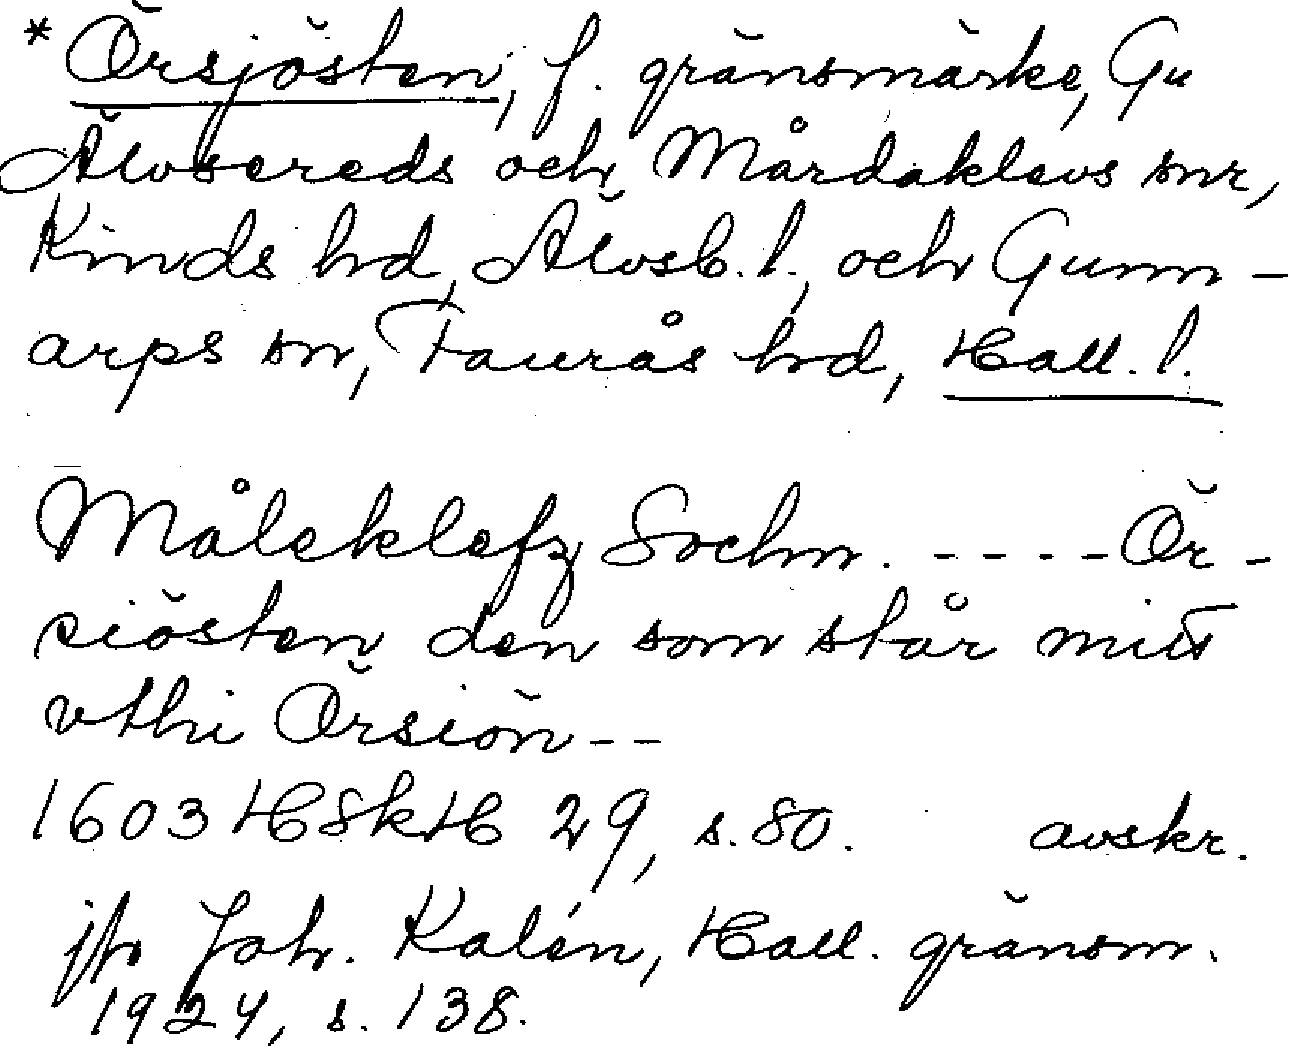 * Örsjösten, f. gränsmärke, Gu
Älvsereds och Mårdaklevs snr,
Kinds hd, Älvsb. l., och Gunn-
arps sn, Faurås hd, Hall. l.
Måleklefz Sochn. ----Ör-
siösten den som står mitt
vthi Örsiön--
1603 HSkH 29, s. 80. avskr.
jfr Joh. Kalén, Hall. gränsm.
1924, s. 138.